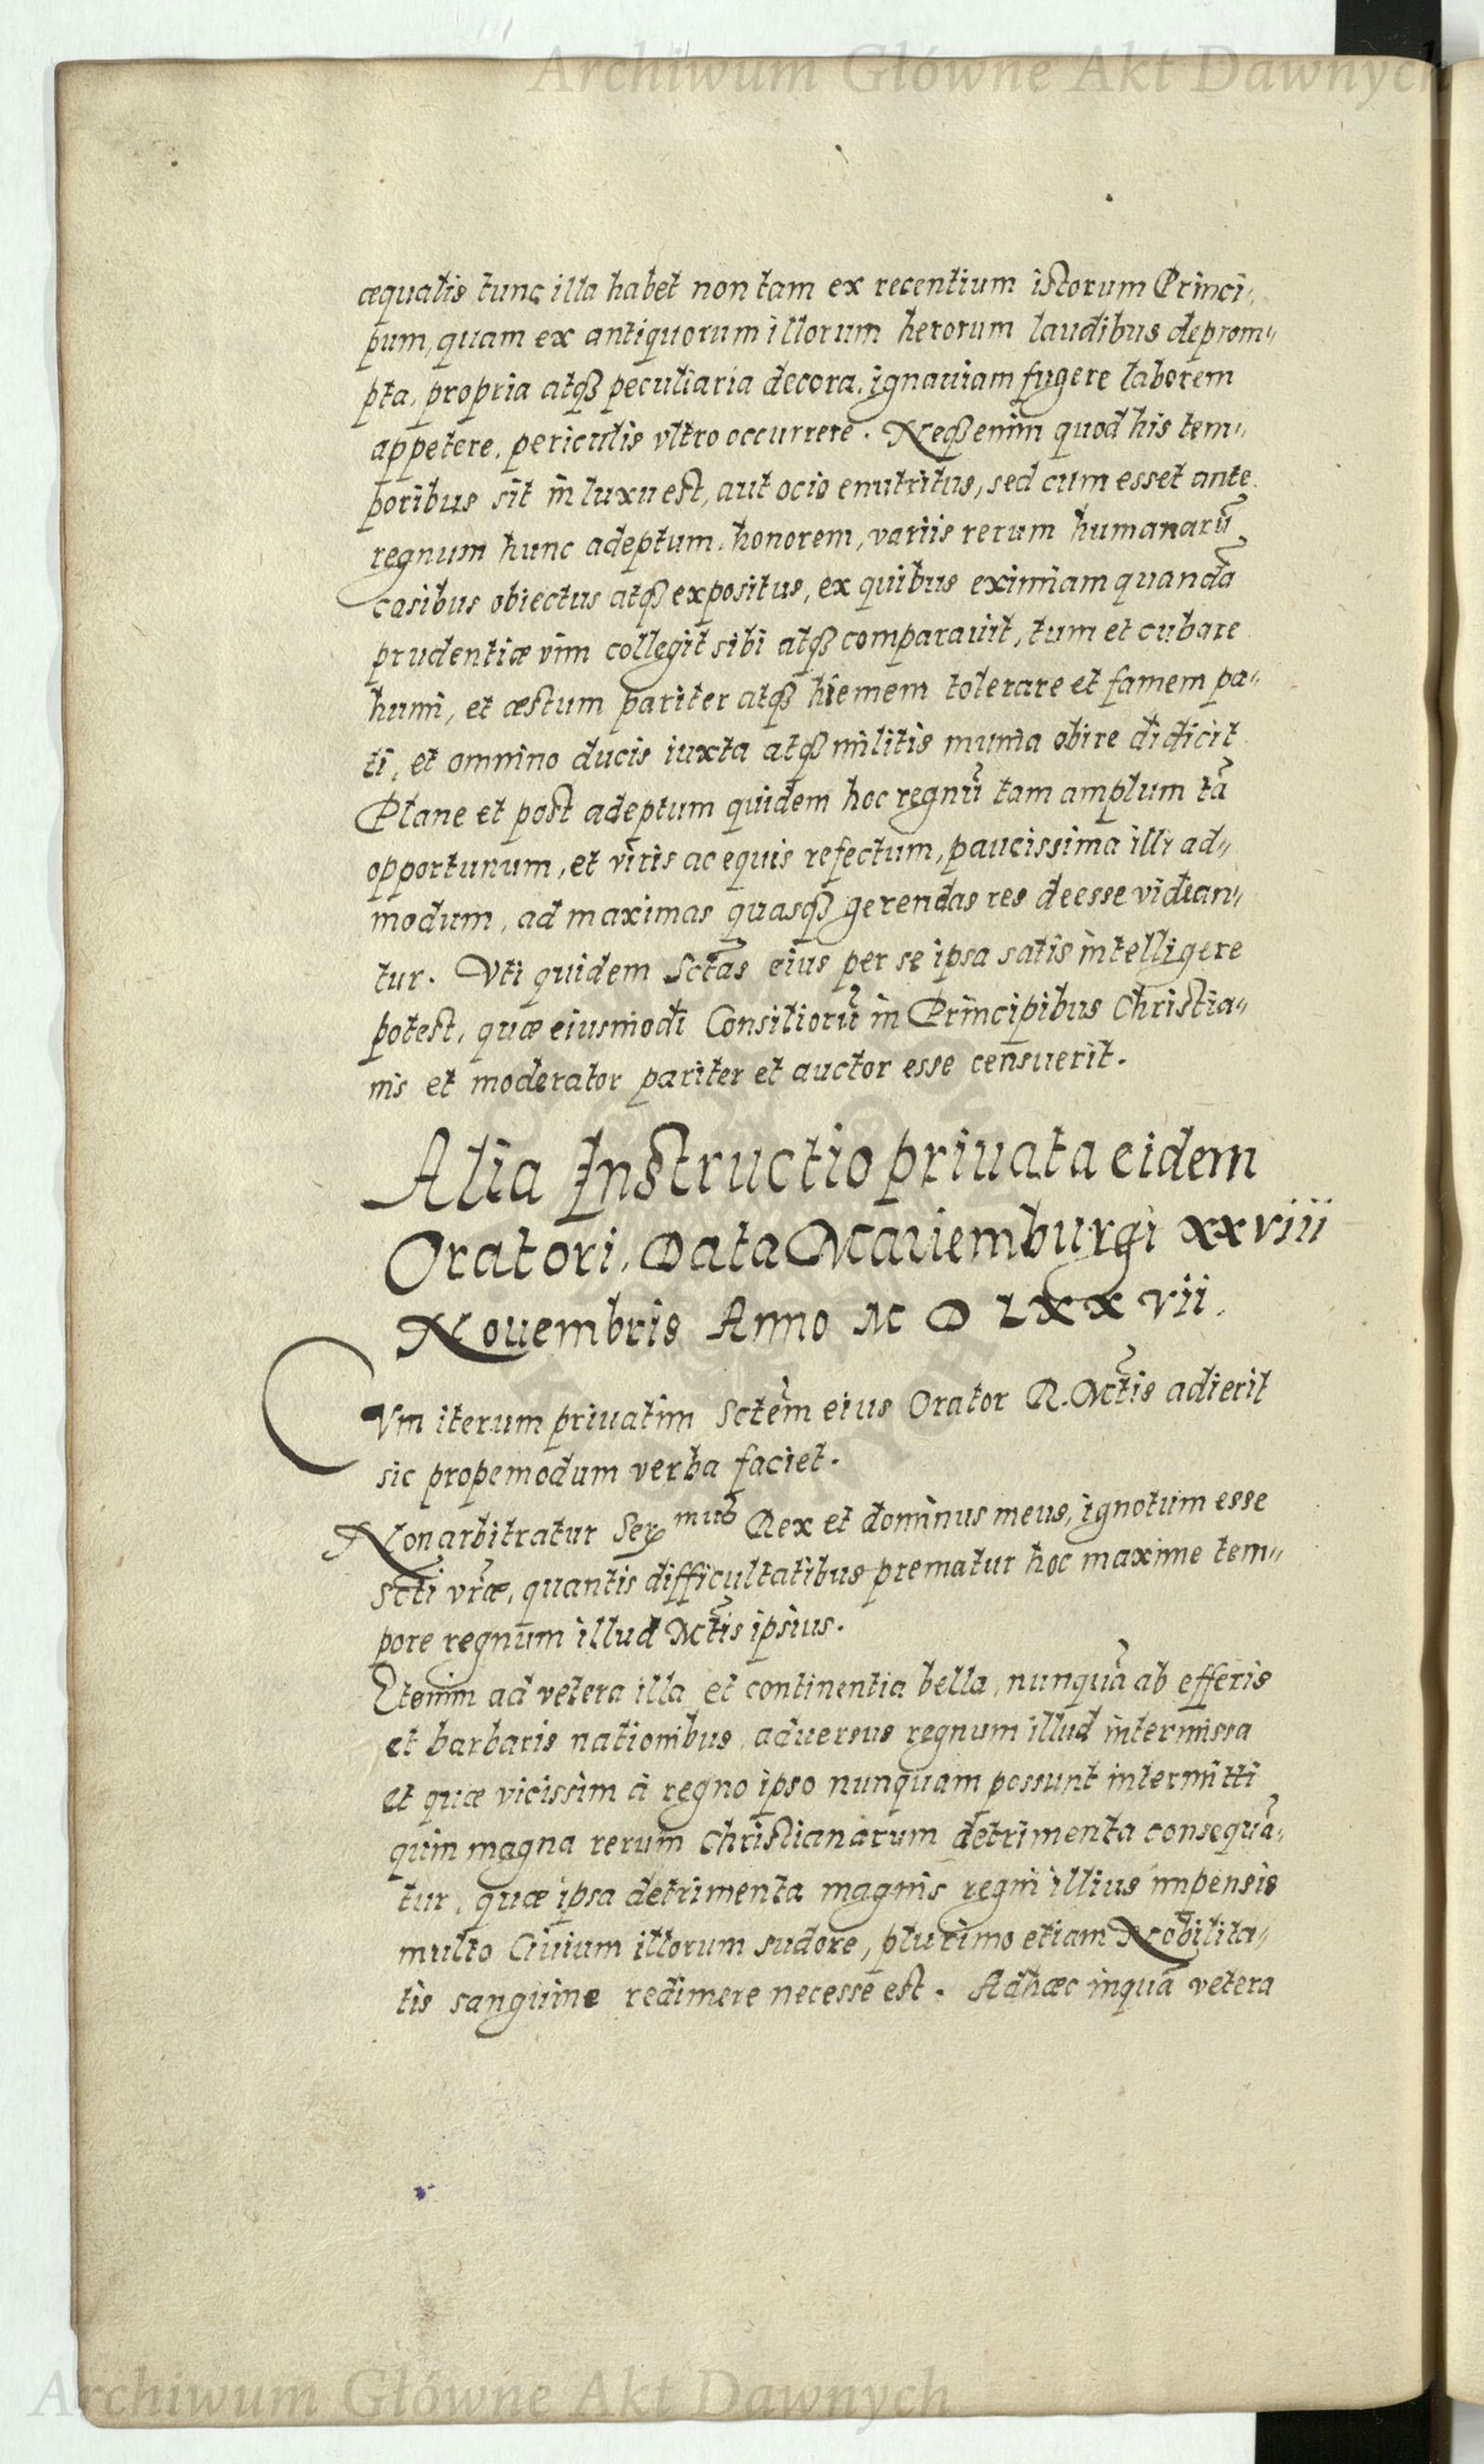 Archiwum Główne Akt Dawnych
æqualis tunc illa habet non tam ex recentium istorum Princi„
pum, quam ex antiquorum illorum herorum laudibus deprom„
pta, propria atqȝ peculiaria decora, ignauiam fugere laborem
appetere, periculis vltro occurrere. Neqȝ enim quod his tem„
poribus sit in luxu est, aut ocio enutritus, sed cum esset ante
regnum hunc adeptum, honorem, variis rerum humanarū
casibus obiectus atqȝ expositus, ex quibus eximiam quandā
prudentiæ vim collegit sibi atqȝ comparauit, tum et cubare
humi, et æstum pariter atqȝ hiemem tolerare et famem pa„
ti, et omnino ducis iuxta atqȝ militis munia obire didicit
Plane et post adeptum quidem hoc regnū tam amplum tā
opportunum, et viris ac equis refectum, paucissima illi ad„
modum, ad maximas quasqȝ gerendas res deesse videan„
tur. Vti quidem Sctas eius per se ipsa satis intelligere
potest, quæ eiusmodi Consiliorū in Principibus Christia„
nis et moderator pariter et auctor esse censuerit.
Alia Instructio priuata eidem
Oratori, Data Mariemburgi xxviii
Nouembris Anno M D Lxx vii.
Cvm iterum priuatim Sctem eius Orator R. Mctis adierit
sic propemodum verba faciet.
Non arbitratur Ser mus Rex et dominus meus, ignotum esse
Scti vræ, quantis difficultatibus prematur hoc maxime tem„
pore regnum illud Mctis ipsius.
Etenim ad vetera illa et continentia bella, nunquā ab efferis
et barbaris nationibus aduersus regnum illud intermissa
et quæ vicissim à regno ipso nunquam possunt intermitti
quin magna rerum Christianarum detrimenta consequā„
tur, quæ ipsa detrimenta magnis regni illius impensis
multo Ciuium illorum sudore, plurimo etiam Nobilita„
tis sanguine redimere necesse est. Ad hæc inquā vetera
Archiwum Główne Akt Dawnych